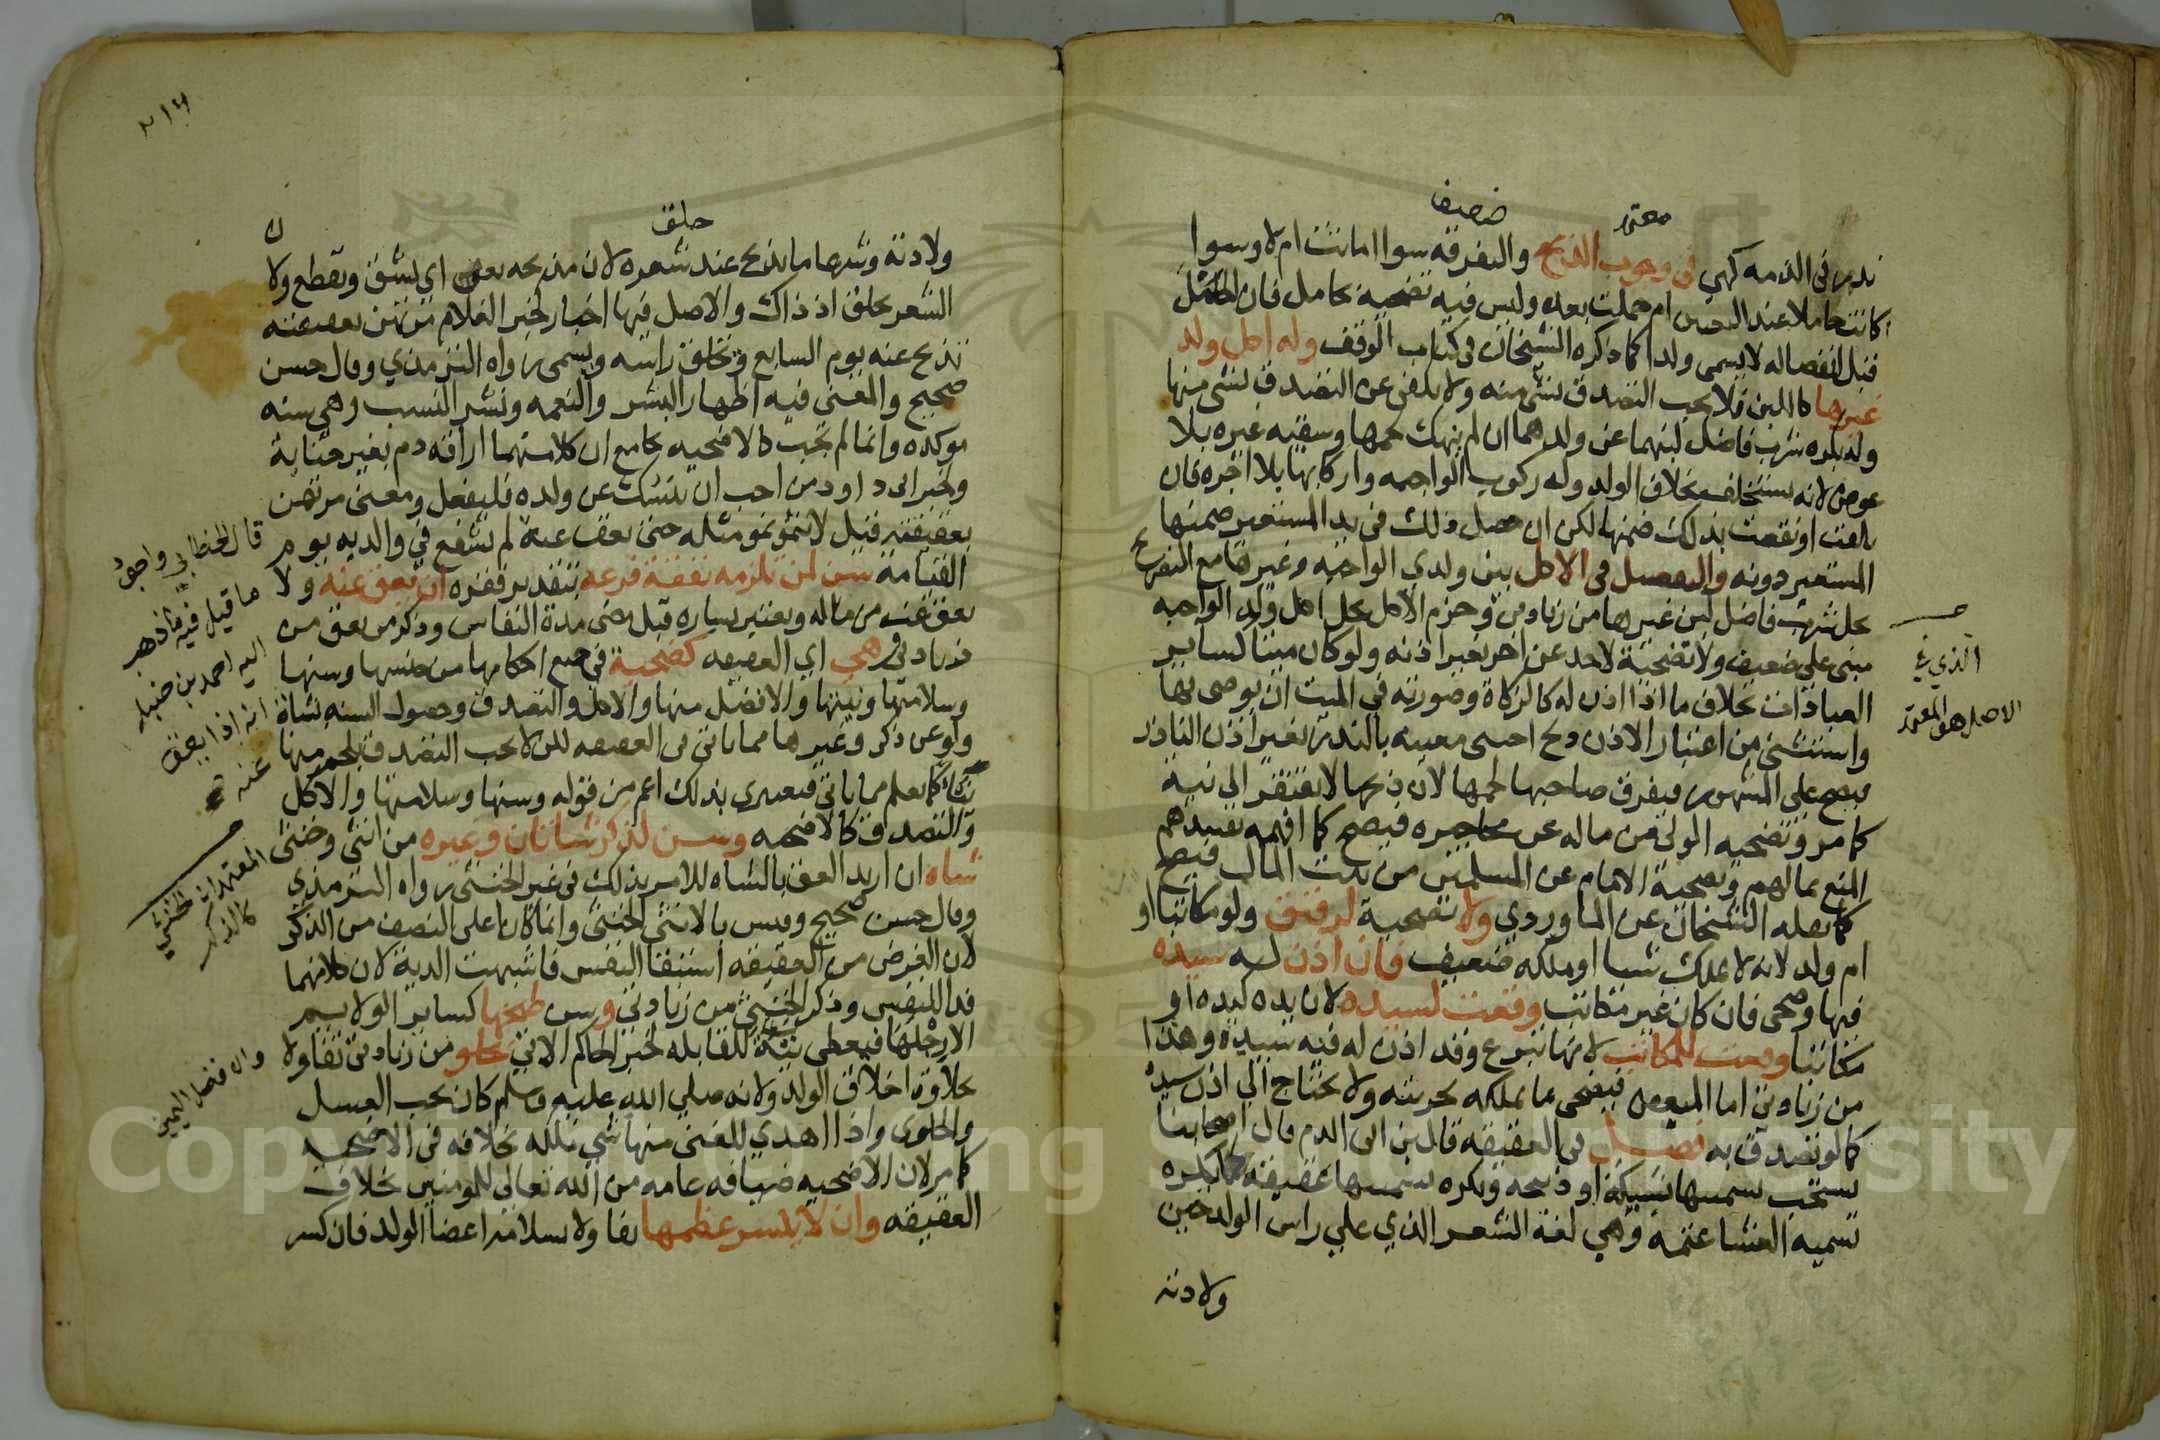 معتمد
ضعيف
نذر في الذمه كهي في وجوب الذبح والتفرقه سوا اماتت ام لا وسوا
اكانت حاملا عند التعيين ام حملت بعده وليس فيه تضحية بحامل فان الحمل
قبل انفصاله لا يسمى ولدا كما ذكره الشيخان في كتاب الوقف وله اكل ولد
غيرها كاللبن فلا يجب التصدق بشي منه ولا يكفي عن التصدق بشي منها
وله بكره شرب فاضل لبنهما عن ولدهما ان لم ينهك لحمها وسقيه غيره بلا
عوض لانه يستخلف بخلاف الولد وله ركوب الواجبه واركابها بلا اجره فان
تلفت او نقصت بذلك ضمنها لكن ان حصل ذلك في يد المستعير ضمنها
المستعير دونه والتفصيل في الاكل بين ولدي الواجبه وغيرها مع التصريح
بحل شرب فاضل لبن غيرها من زيادتي وجزم الاصل بحل اكل ولد الواجبه
مبني على ضعيف ولا تضحية لاحد عن اخر بغير اذنه ولو كان ميتا كساير
العبادات بخلاف ما اذا اذن له كالزكاة وصورته في الميت ان يوصي بها
واستثني من اعتبار الاذن ذبح اجنبي معينه بالنذر بغير اذن الناذر
فيصح على المشهور فيفرق صاحبها لحمها لان ذبحها لا يفتقر الى نية
كما مر وتضحيه الولي من ماله عن محاجيره فيصح كما افهمه تقييدهم
المنع بمالهم وتضحية الامام عن المسلمين من بيت المال فيصح
كما نقله الشيخان عن الماوردي ولا تضحية لرقيق ولو مكاتبا او
ام ولد لانه لا يملك شيا او ملكه ضعيف فان اذن له سيده
فيها وضحى فان كان غير مكاتب وقعت لسيده لان يده كيده او
مكاتبا وقعت للمكاتب لانها تبرع وقد اذن له فيه سيده وهذا
من زيادتي اما المبعض فيضحي بما يملكه بحريته ولا يحتاج الى اذن سيده
كما لو تصدق به فصل في العقيقه قال بن ابي الدم قال اصحابنا
يستحب تسميتها نسيكة او ذبيحه ويكره تسميتها عقيقه كما يكره
تسميه العشا عتمه وهي لغة الشعر الذي على راس الولد حين
ولادته
الذي في
الاصل هو المعتمد
٢١٤
حلق
ولادته وشرعا ما يذبح عند شعره لان مذبحه يعق اي يشق ويقطع ولا
الشعر يحلق اذ ذاك والاصل فيها اخبار كخبر الغلام مرتهن بعقيقته
تذبح عنه يوم السابع ويحلق راسه ويسمى رواه الترمذي وقال حسن
صحيح والمعنى فيه اظهار البشر والنعمه ونشر النسب وهي سنه
موكده وانما لم تجب كالاضحيه بجامع ان كلا منهما اراقه دم بغير جناية
ولخبر ابي داود من احب ان ينسك عن ولده فليفعل ومعنى مرتهن
بعقيقته قيل لا ينمو نمو مثله حتى يعق عنه لم يشفع في والديه يوم
القيامة سن لمن تلزمه نفقة فرعه بتقدير فقره ان يعق عنه ولا
يعق عنه من ماله ويعتبر يساره قبل مضى مدة النفاس وذكر من يعق من
زيادتي وهي اي العقيقه كضحية في جميع احكامها من جنسها وسنها
وسلامتها ونيتها والافضل منها والاكل والتصدق وحصول السنه بشاة
ولو عن ذكر وغيرها مما ياتي في العقيقه لكن لا يجب التصدق بلحم منها
نيا كما يعلم مما ياتي فتعبيري بذلك اعم من قوله وسنها وسلامتها والاكل
والتصدق كالاضحيه وسن لذكر شاتان وغيره من انثى وخنثى
شاه ان اريد العق بالشاه للامر بذلك في غير الخنثى رواه الترمذي
وقال حسن صحيح وقيس بالانثى الخنثى وانما كانا على النصف من الذكر
لان الغرض من العقيقه استبقا النفس فاشبهت الدية لان كلا منهما
فدا للنفس وذكر الخنثى من زيادتي وسن طبخها كساير الولايم
الا رجلها فيعطى نيئة للقابله لخبر الحاكم الاتي بحلو من زيادتي تفاولا
بحلاوة اخلاق الولد ولانه صلى الله عليه وسلم كان يحب العسل
والحلوى واذا اهدي للغني منها شي ملكه بخلافه في الاضحيه
كما مر لان الاضحيه ضيافه عامه من الله تعالى للمومنين بخلاف
العقيقه وان لا يكسر عظمها تفاولا بسلامه اعضا الولد فان كسر
قال الخطابي واجود
ما قيل فيه ما ذهب
اليه احمد بن حنبل
انه اذا لم يعق
عنه
المعتمد ان الخنثى
كالذكر
والافضل اليمين
Copyright © King Saud University